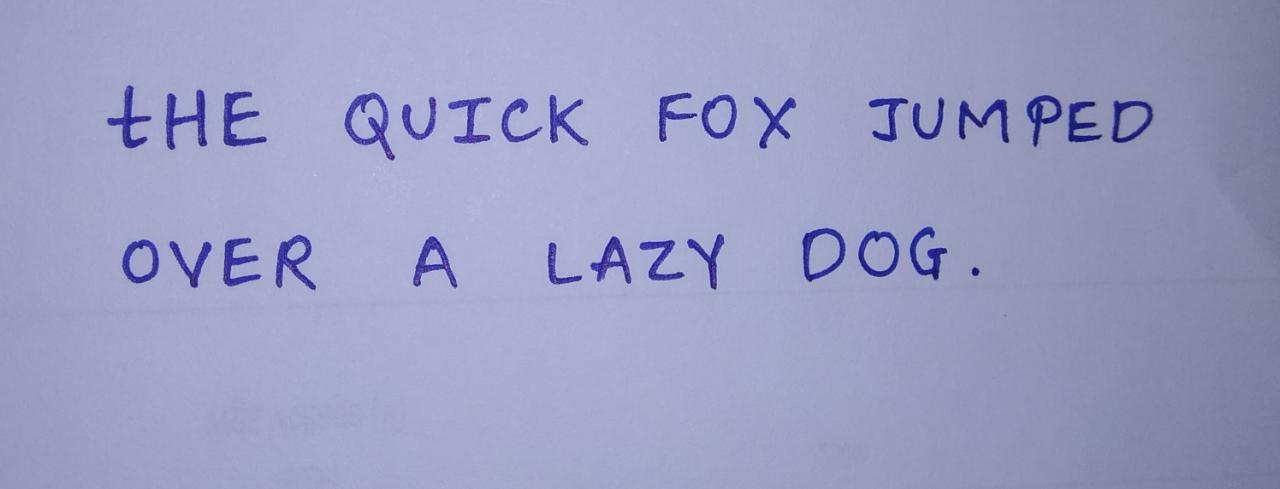 tHE QUICK FOX JUMPED
OVER A LAZY DOG.